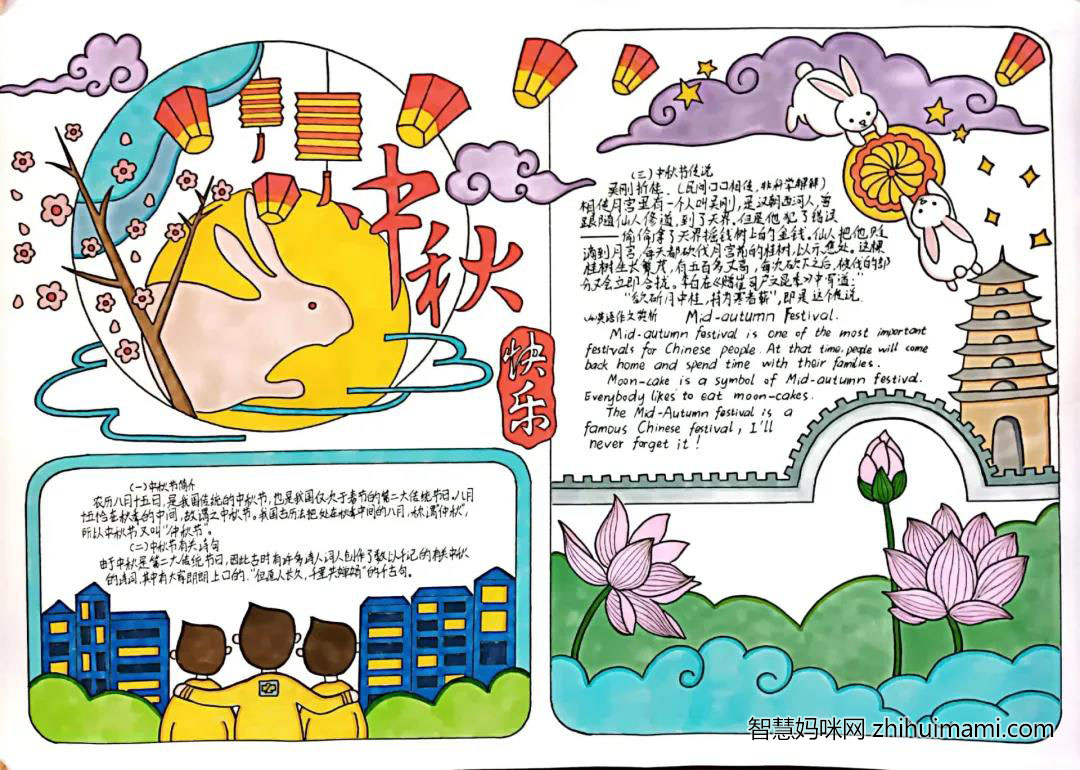 中秋
快乐
(一)中秋节简介
农历八月十五日,是我国传统的中秋节,也是我国仅次于春节的第二大传统节日。八月
十五恰在秋季的中间,故谓之中秋节。我国古历法把处在秋季中间的八月,称谓"仲秋",
所以中秋节又叫"仲秋节"。
(二)中秋节有关诗句
由于中秋是第二大传统节日,因此古时有许多诗人词人创作了数以千记的有关中秋
的诗词,其中有大家朗朗上口的:"但愿人长久,千里共婵娟"的千古句。
(三)中秋节传说
吴刚折桂.(民间口口相传,非科学解释)
相传月宫里有一个人叫吴刚,是汉朝西河人,曾
跟随仙人修道,到了天界,但是他犯了错误
——偷偷拿了天界摇钱树上的金钱,仙人把他贬
谪到月宫,每天都砍伐月宫前的桂树,以示惩处。这棵
桂树生长繁茂,有五百多丈高,每次砍下之后,被伐的部
分又会立即合拢。李白在《赠崔司户文昆季》中写道:
"欲斫月中桂,持为寒者薪",即是这个传说.
英语作文赏析 Mid-autumn Festival.
Mid-autumn festival is one of the most important
festivals for Chinese people. At that time, people will come
back home and spend time with their families.
Moon-cake is a symbol of Mid-autumn festival.
Everybody likes to eat moon-cakes.
The Mid-Autumn festival is a
famous Chinese festival, I'll
never forget it!
智慧妈咪网 zhihuimami.com